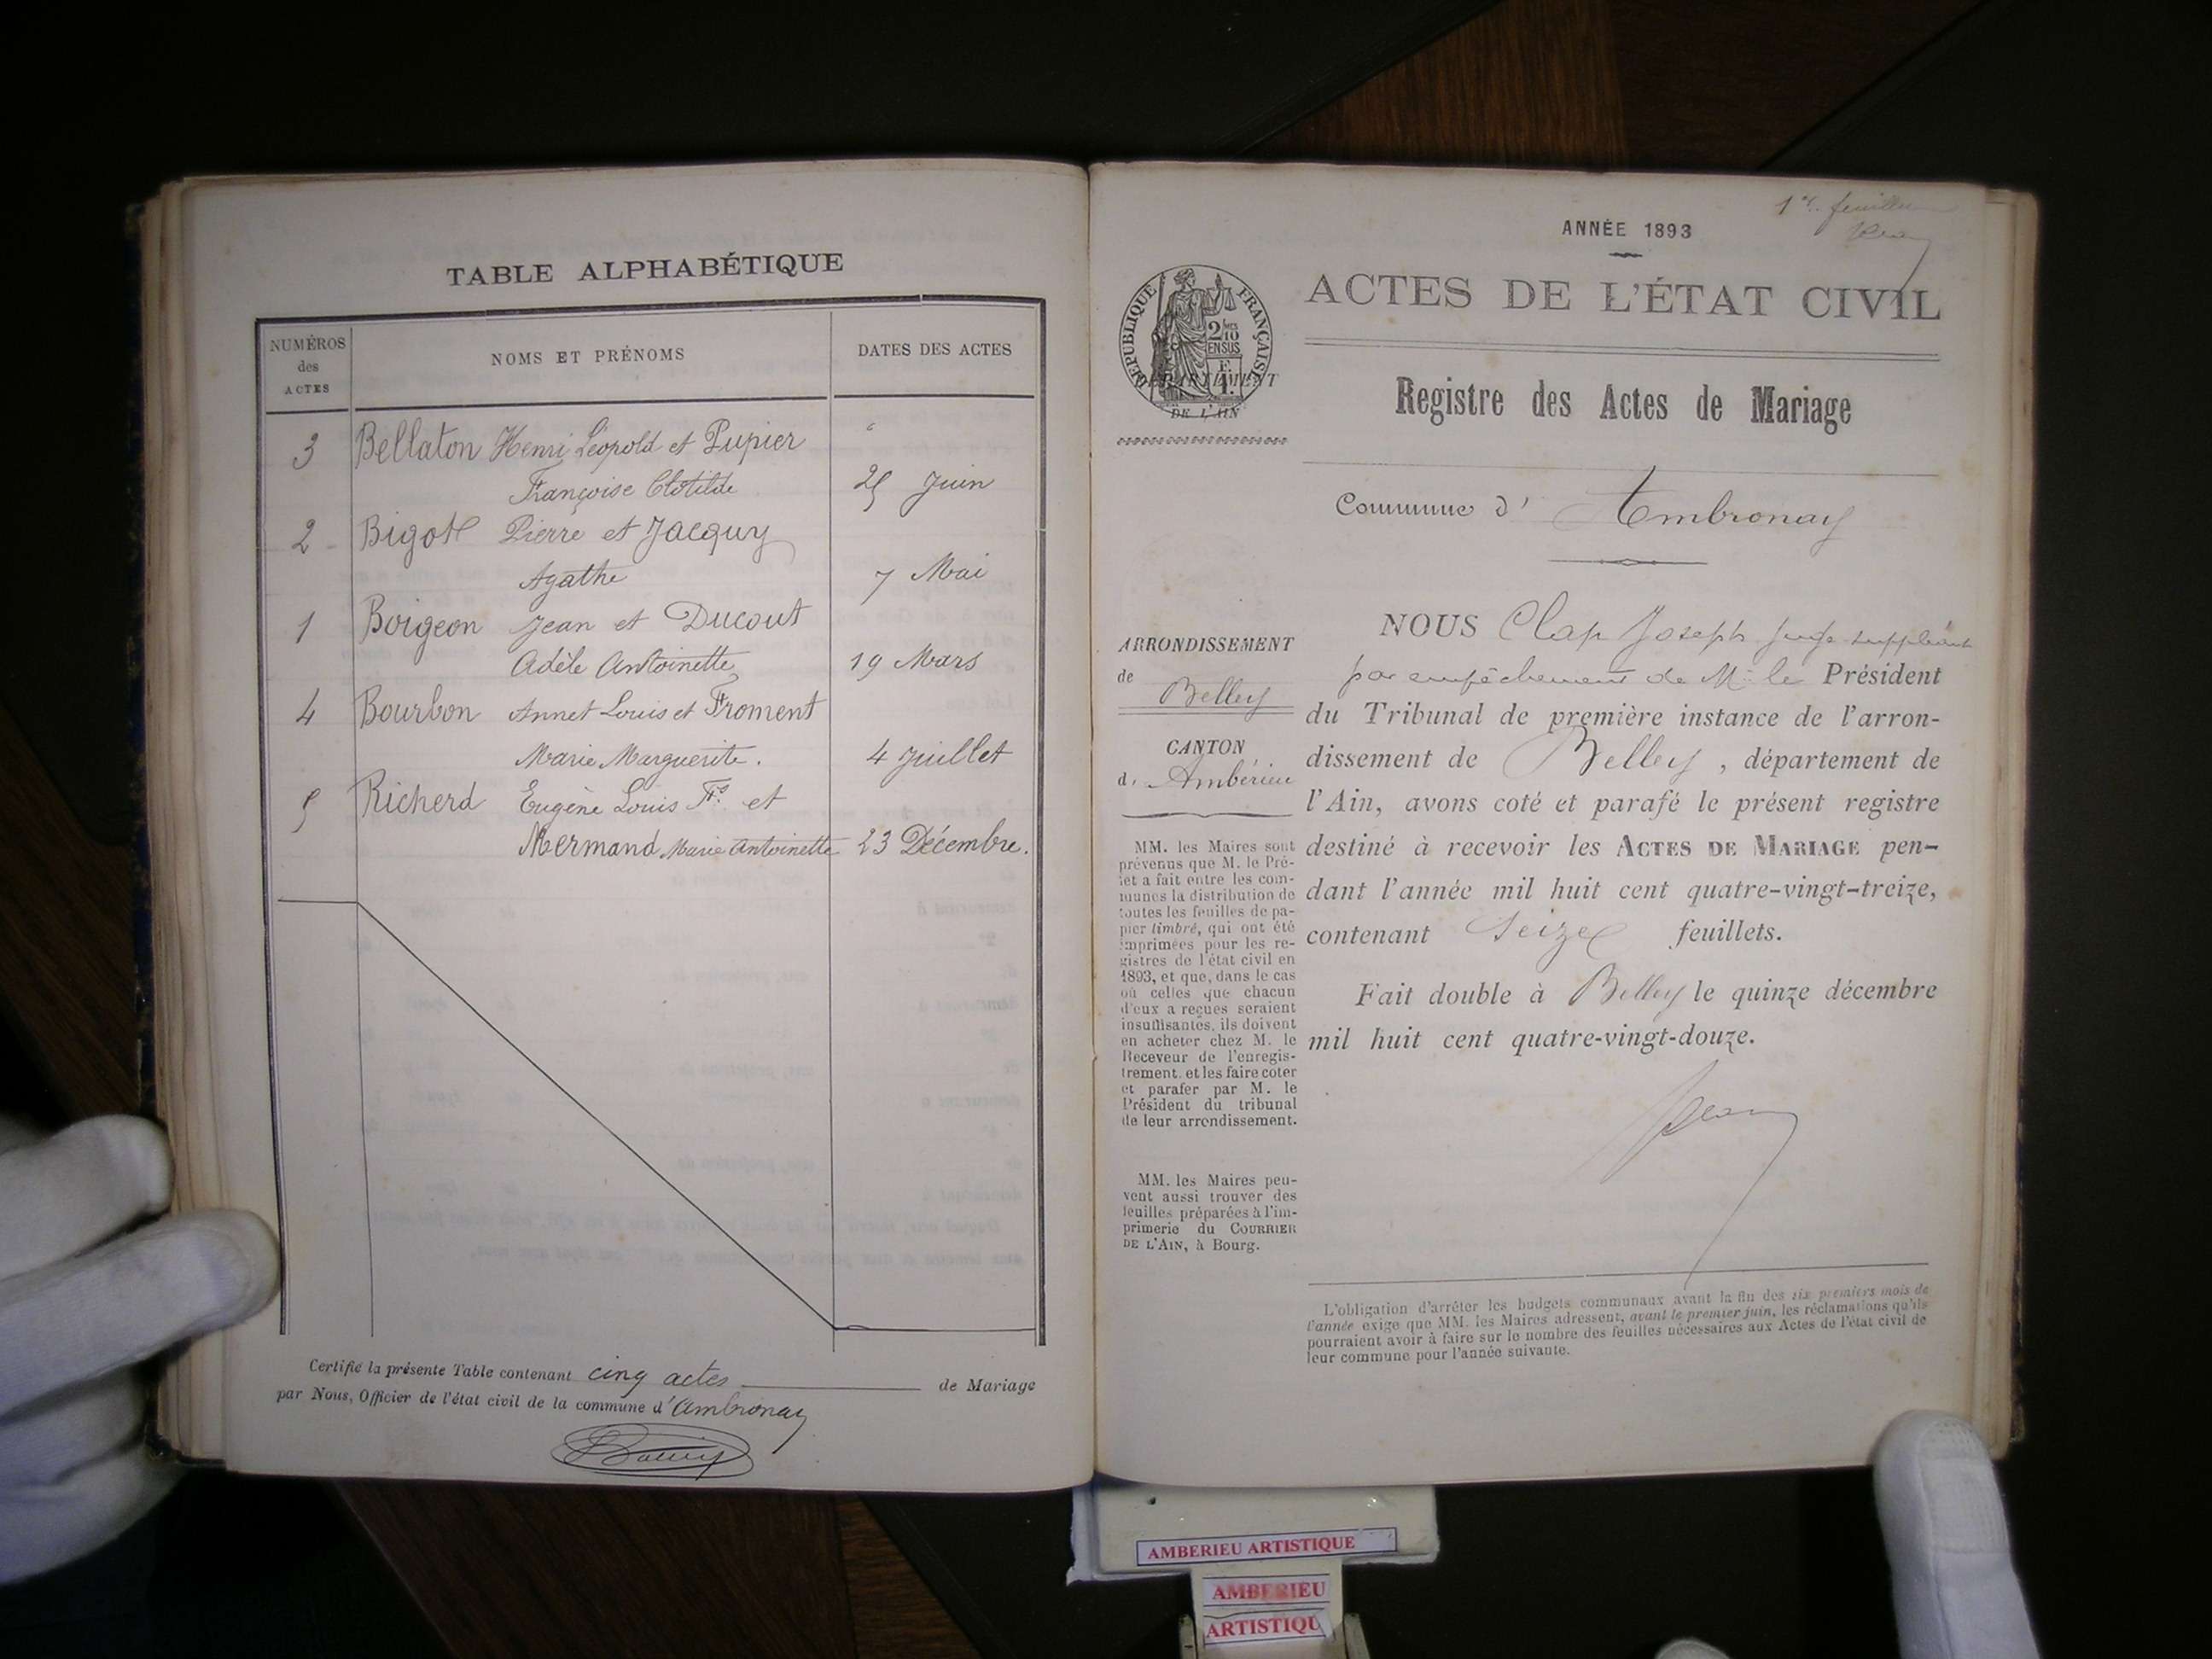 TABLE ALPHABÉTIQUE
NUMÉROS des ACTES
NOMS ET PRÉNOMS
DATES DES ACTES
3 Bellaton Henri Léopold et Pupier
Françoise Clotilde 25 Juin
2 Bigot Pierre et Jacquy
Agathe 7 Mai
1 Boigeon Jean et Ducout
Adèle Antoinette 19 Mars
4 Bourbon Annet Louis et Froment
Marie Marguerite. 4 Juillet
5 Richerd Eugène Louis Fs. et
Mermand Marie Antoinette 23 Décembre.
Certifié la présente Table contenant cinq actes de Mariage
par Nous, Officier de l'état civil de la commune d'Ambronay
1er feuillet
ANNÉE 1893
ACTES DE L'ÉTAT CIVIL
RÉPUBLIQUE FRANÇAISE
2/10 EN SUS
DÉPARTEMENT
DE L'AIN
Registre des Actes de Mariage
Commune d' Ambronay
ARRONDISSEMENT
de
Belley
CANTON
d' Ambérieu
MM. les Maires sont
prévenus que M. le Pré-
fet a fait entre les com-
munes la distribution de
toutes les feuilles de pa-
pier timbré, qui ont été
imprimées pour les re-
gistres de l'état civil en
1893, et que, dans le cas
où celles que chacun
d'eux a reçues seraient
insuffisantes, ils doivent
en acheter chez M. le
Receveur de l'enregis-
trement, et les faire coter
et parafer par M. le
Président du tribunal
de leur arrondissement.
MM. les Maires peu-
vent aussi trouver des
feuilles préparées à l'im-
primerie du COURRIER
DE L'AIN, à Bourg.
NOUS Clap Joseph juge suppléant
par empêchement de M. le Président
du Tribunal de première instance de l'arron-
dissement de Belley, département de
l'Ain, avons coté et parafé le présent registre
destiné à recevoir les ACTES DE MARIAGE pen-
dant l'année mil huit cent quatre-vingt-treize,
contenant seize feuillets.
Fait double à Belley le quinze décembre
mil huit cent quatre-vingt-douze.
L'obligation d'arrêter les budgets communaux avant la fin des six premiers mois de
l'année exige que MM. les Maires adressent, avant le premier juin, les réclamations qu'ils
pourraient avoir à faire sur le nombre des feuilles nécessaires aux Actes de l'état civil de
leur commune pour l'année suivante.
AMBERIEU ARTISTIQUE
AMBERIEU
ARTISTIQU